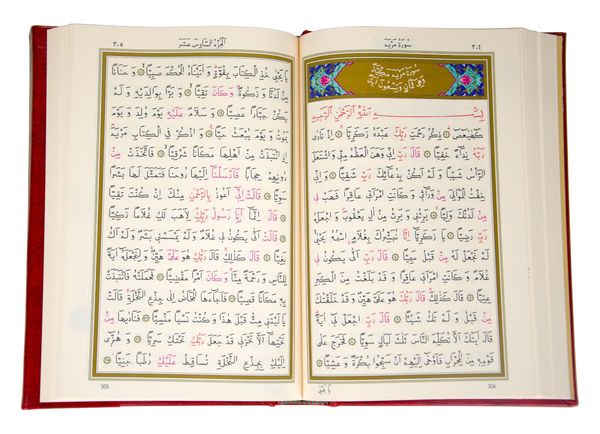 ٣٠٤ سُورَةُ مَرْيَمَ
سُورَةُ مَرْيَمَ مَكِّيَّةٌ
وَهِيَ ثَمَانٍ وَتِسْعُونَ اٰيَةً
بِسْمِ اللّٰهِ الرَّحْمٰنِ الرَّحِيمِ
كٓهٰيٰعٓصٓ ۞ ذِكْرُ رَحْمَتِ رَبِّكَ عَبْدَهُ زَكَرِيَّا ۞ اِذْ نَادٰى
رَبَّهُ نِدَٓاءً خَفِيًّا ۞ قَالَ رَبِّ اِنِّى وَهَنَ الْعَظْمُ مِنِّى وَاشْتَعَلَ
الرَّأْسُ شَيْبًا وَلَمْ اَكُنْ بِدُعَٓائِكَ رَبِّ شَقِيًّا ۞ وَاِنِّى
خِفْتُ الْمَوَالِىَ مِنْ وَرَٓائِى وَكَانَتِ امْرَاَتِى عَاقِرًا فَهَبْ لِى
مِنْ لَدُنْكَ وَلِيًّا ۞ يَرِثُنِى وَيَرِثُ مِنْ اٰلِ يَعْقُوبَ وَاجْعَلْهُ
رَبِّ رَضِيًّا ۞ يَا زَكَرِيَّٓا اِنَّا نُبَشِّرُكَ بِغُلَامٍ اسْمُهُ يَحْيٰى
لَمْ نَجْعَلْ لَهُ مِنْ قَبْلُ سَمِيًّا ۞ قَالَ رَبِّ اَنّٰى يَكُونُ لِى
غُلَامٌ وَكَانَتِ امْرَاَتِى عَاقِرًا وَقَدْ بَلَغْتُ مِنَ الْكِبَرِ
عِتِيًّا ۞ قَالَ كَذٰلِكَ قَالَ رَبُّكَ هُوَ عَلَىَّ هَيِّنٌ وَقَدْ خَلَقْتُكَ
مِنْ قَبْلُ وَلَمْ تَكُ شَيْئًا ۞ قَالَ رَبِّ اجْعَلْ لِٓى اٰيَةً
قَالَ اٰيَتُكَ اَلَّا تُكَلِّمَ النَّاسَ ثَلٰثَ لَيَالٍ سَوِيًّا ۞ فَخَرَجَ عَلٰى
قَوْمِهِ مِنَ الْمِحْرَابِ فَاَوْحٰٓى اِلَيْهِمْ اَنْ سَبِّحُوا بُكْرَةً وَعَشِيًّا ۞
يَا يَحْيٰى
304
اَلْجُزْءُ السَّادِسَ عَشَرَ ٣٠٥
يَا يَحْيٰى خُذِ الْكِتَابَ بِقُوَّةٍ وَاٰتَيْنَاهُ الْحُكْمَ صَبِيًّا ۞ وَحَنَانًا
مِنْ لَدُنَّا وَزَكٰوةً وَكَانَ تَقِيًّا ۞ وَبَرًّا بِوَالِدَيْهِ وَلَمْ
يَكُنْ جَبَّارًا عَصِيًّا ۞ وَسَلَامٌ عَلَيْهِ يَوْمَ وُلِدَ وَيَوْمَ
يَمُوتُ وَيَوْمَ يُبْعَثُ حَيًّا ۞ وَاذْكُرْ فِى الْكِتَابِ مَرْيَمَ
اِذِ انْتَبَذَتْ مِنْ اَهْلِهَا مَكَانًا شَرْقِيًّا ۞ فَاتَّخَذَتْ مِنْ
دُونِهِمْ حِجَابًا فَاَرْسَلْنَٓا اِلَيْهَا رُوحَنَا فَتَمَثَّلَ لَهَا بَشَرًا
سَوِيًّا ۞ قَالَتْ اِنِّٓى اَعُوذُ بِالرَّحْمٰنِ مِنْكَ اِنْ كُنْتَ تَقِيًّا
۞ قَالَ اِنَّمَٓا اَنَا رَسُولُ رَبِّكِ لِاَهَبَ لَكِ غُلَامًا زَكِيًّا
۞ قَالَتْ اَنّٰى يَكُونُ لِى غُلَامٌ وَلَمْ يَمْسَسْنِى بَشَرٌ وَلَمْ اَكُ
بَغِيًّا ۞ قَالَ كَذٰلِكِ قَالَ رَبُّكِ هُوَ عَلَىَّ هَيِّنٌ وَلِنَجْعَلَهُٓ اٰيَةً
لِلنَّاسِ وَرَحْمَةً مِنَّا وَكَانَ اَمْرًا مَقْضِيًّا ۞ فَحَمَلَتْهُ فَانْتَبَذَتْ
بِهِ مَكَانًا قَصِيًّا ۞ فَاَجَٓاءَهَا الْمَخَاضُ اِلٰى جِذْعِ النَّخْلَةِ قَالَتْ
يَا لَيْتَنِى مِتُّ قَبْلَ هٰذَا وَكُنْتُ نَسْيًا مَنْسِيًّا ۞ فَنَادٰيهَا مِنْ
تَحْتِهَٓا اَلَّا تَحْزَنِى قَدْ جَعَلَ رَبُّكِ تَحْتَكِ سَرِيًّا ۞ وَهُزِّٓى
اِلَيْكِ بِجِذْعِ النَّخْلَةِ تُسَاقِطْ عَلَيْكِ رُطَبًا جَنِيًّا ۞
305